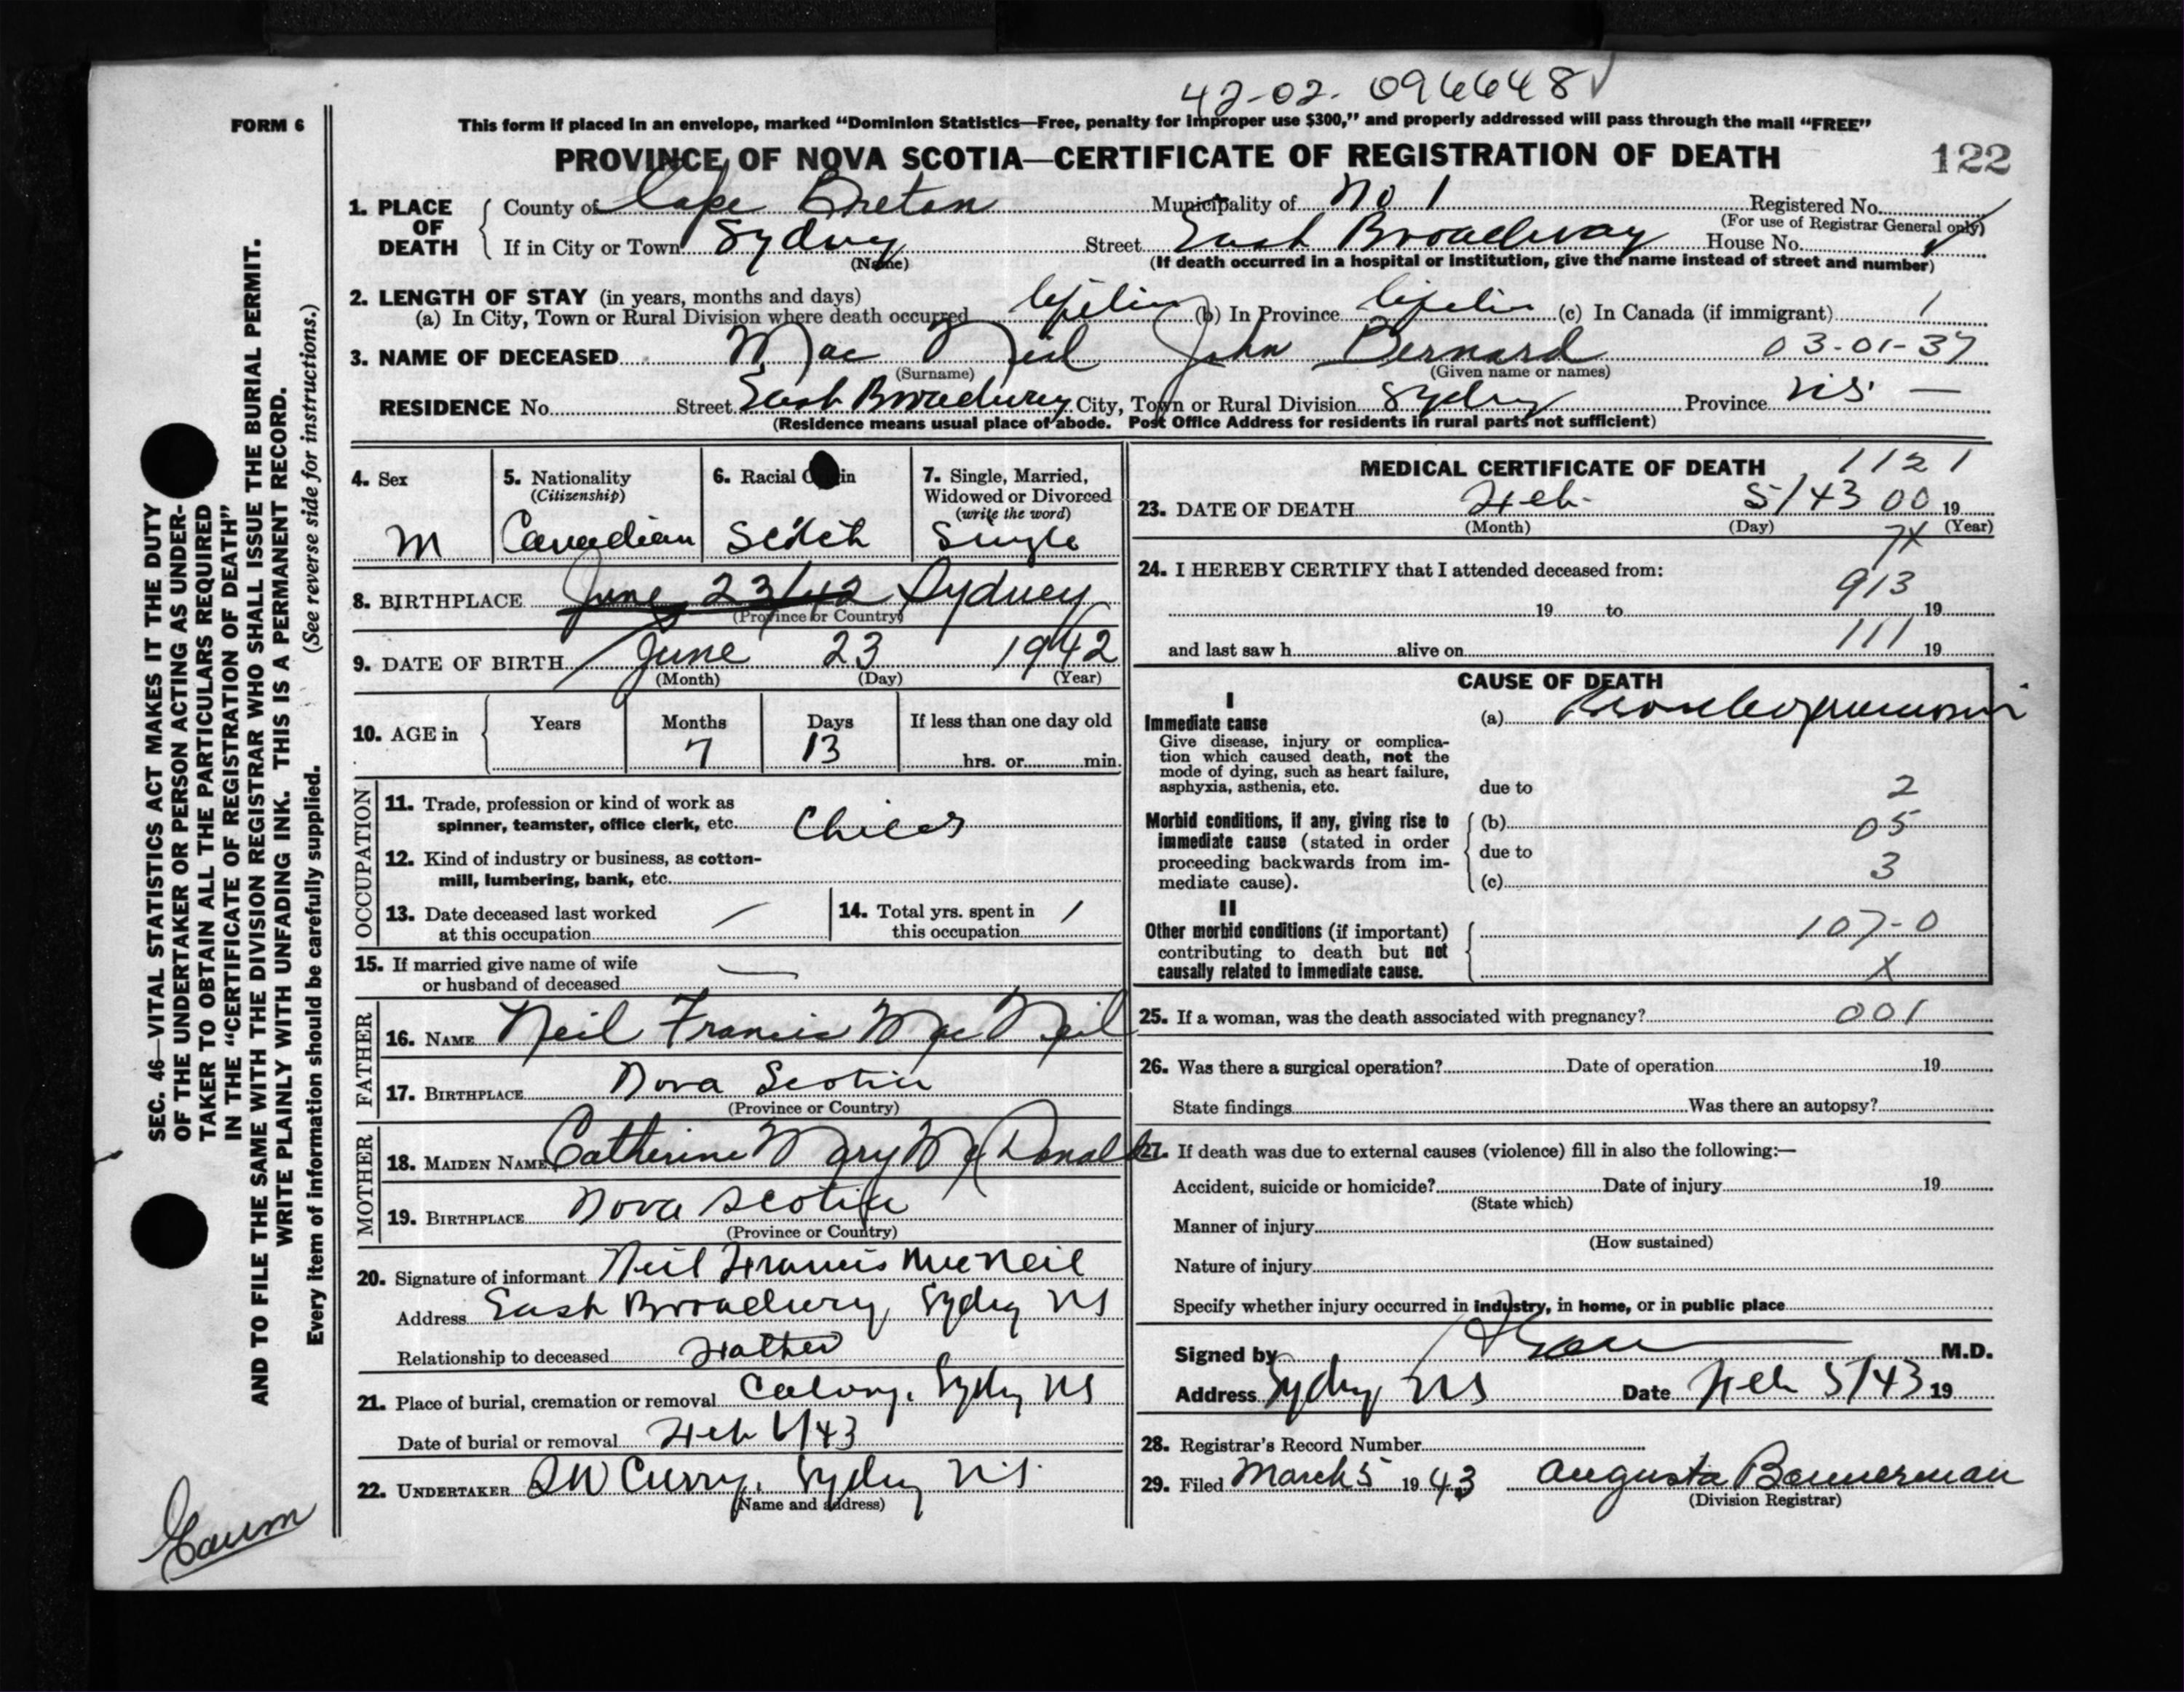 42-02. 096648
FORM 6
This form if placed in an envelope, marked “Dominion Statistics—Free, penalty for improper use $300,” and properly addressed will pass through the mail “FREE”
PROVINCE OF NOVA SCOTIA—CERTIFICATE OF REGISTRATION OF DEATH 122
1. PLACE OF DEATH County of Cape Breton Municipality of No 1 Registered No.
(For use of Registrar General only)
If in City or Town Sydney Street East Broadway House No.
(Name) (If death occurred in a hospital or institution, give the name instead of street and number)
2. LENGTH OF STAY (in years, months and days)
(a) In City, Town or Rural Division where death occurred (b) In Province (c) In Canada (if immigrant)
3. NAME OF DECEASED Mac Neil John Bernard 03-01-37
(Surname) (Given name or names)
RESIDENCE No. Street East Broadway City, Town or Rural Division Sydney Province NS. —
(Residence means usual place of abode. Post Office Address for residents in rural parts not sufficient)
4. Sex
M
5. Nationality
(Citizenship)
Canadian
6. Racial Origin
Scotch
7. Single, Married,
Widowed or Divorced
(write the word)
Single
8. BIRTHPLACE June 23/42 Sydney
(Province or Country)
9. DATE OF BIRTH June 23 1942
(Month) (Day) (Year)
10. AGE in Years Months Days If less than one day old
7 13 hrs. or min.
OCCUPATION
11. Trade, profession or kind of work as
spinner, teamster, office clerk, etc. Child
12. Kind of industry or business, as cotton-
mill, lumbering, bank, etc.
13. Date deceased last worked
at this occupation
14. Total yrs. spent in
this occupation
15. If married give name of wife
or husband of deceased
FATHER
16. NAME Neil Francis Mac Neil
17. BIRTHPLACE Nova Scotia
(Province or Country)
MOTHER
18. MAIDEN NAME Catherine Mary Mc Donald
19. BIRTHPLACE Nova Scotia
(Province or Country)
20. Signature of informant Neil Francis MacNeil
Address East Broadway, Sydney NS
Relationship to deceased Father
21. Place of burial, cremation or removal Calvary, Sydney NS
Date of burial or removal Feb 6/43
22. UNDERTAKER Curry, Sydney N.S.
(Name and address)
MEDICAL CERTIFICATE OF DEATH 1121
23. DATE OF DEATH Feb 5/43 00 19
(Month) (Day) (Year)
7X
24. I HEREBY CERTIFY that I attended deceased from:
913
19 to 19
111
and last saw h alive on 19
CAUSE OF DEATH
I
Immediate cause (a) Bronchopneumonia
Give disease, injury or complica-
tion which caused death, not the
mode of dying, such as heart failure,
asphyxia, asthenia, etc. due to 2
Morbid conditions, if any, giving rise to (b) 05
immediate cause (stated in order due to
proceeding backwards from im- 3
mediate cause). (c)
II
Other morbid conditions (if important) 107-0
contributing to death but not
causally related to immediate cause. X
25. If a woman, was the death associated with pregnancy? 001
26. Was there a surgical operation? Date of operation 19
State findings Was there an autopsy?
27. If death was due to external causes (violence) fill in also the following:—
Accident, suicide or homicide? Date of injury 19
(State which)
Manner of injury
(How sustained)
Nature of injury
Specify whether injury occurred in industry, in home, or in public place
Signed by M.D.
Address Sydney NS Date Feb 5/43 19
28. Registrar's Record Number
29. Filed March 5 1943 Augusta Bannerman
(Division Registrar)
SEC. 46—VITAL STATISTICS ACT MAKES IT THE DUTY
OF THE UNDERTAKER OR PERSON ACTING AS UNDER-
TAKER TO OBTAIN ALL THE PARTICULARS REQUIRED
IN THE “CERTIFICATE OF REGISTRATION OF DEATH”
AND TO FILE THE SAME WITH THE DIVISION REGISTRAR WHO SHALL ISSUE THE BURIAL PERMIT.
WRITE PLAINLY WITH UNFADING INK. THIS IS A PERMANENT RECORD.
Every item of information should be carefully supplied. (See reverse side for instructions.)